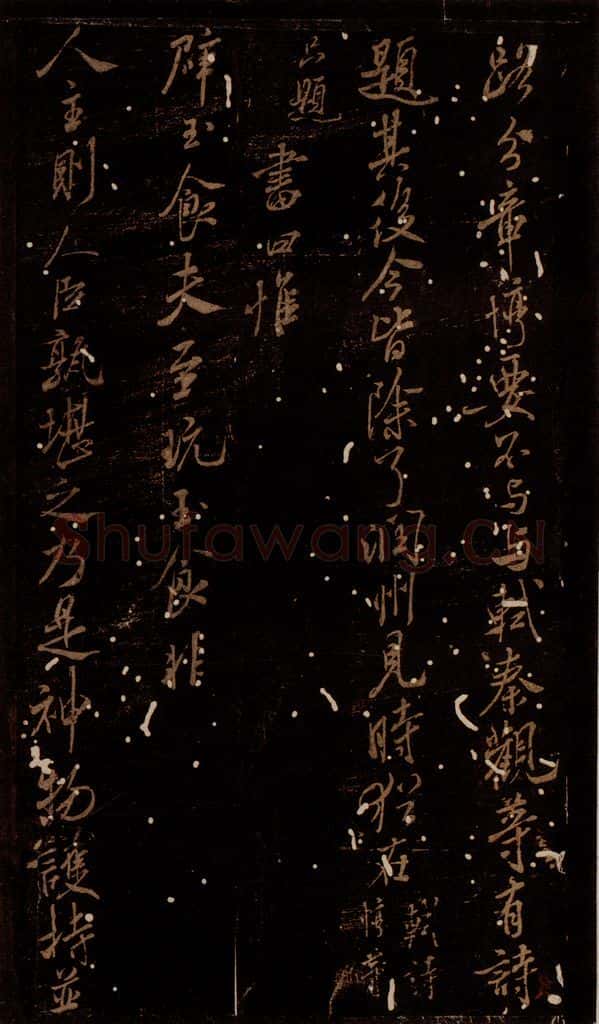 路分章惇要不与与軾秦觀等有詩
題其後今皆除了潤州見時猶在
軾詩
題書曰惟
辟玉食夫至玩玉食非
人主則人臣孰堪之乃是神物護持並
Shufawang.CN